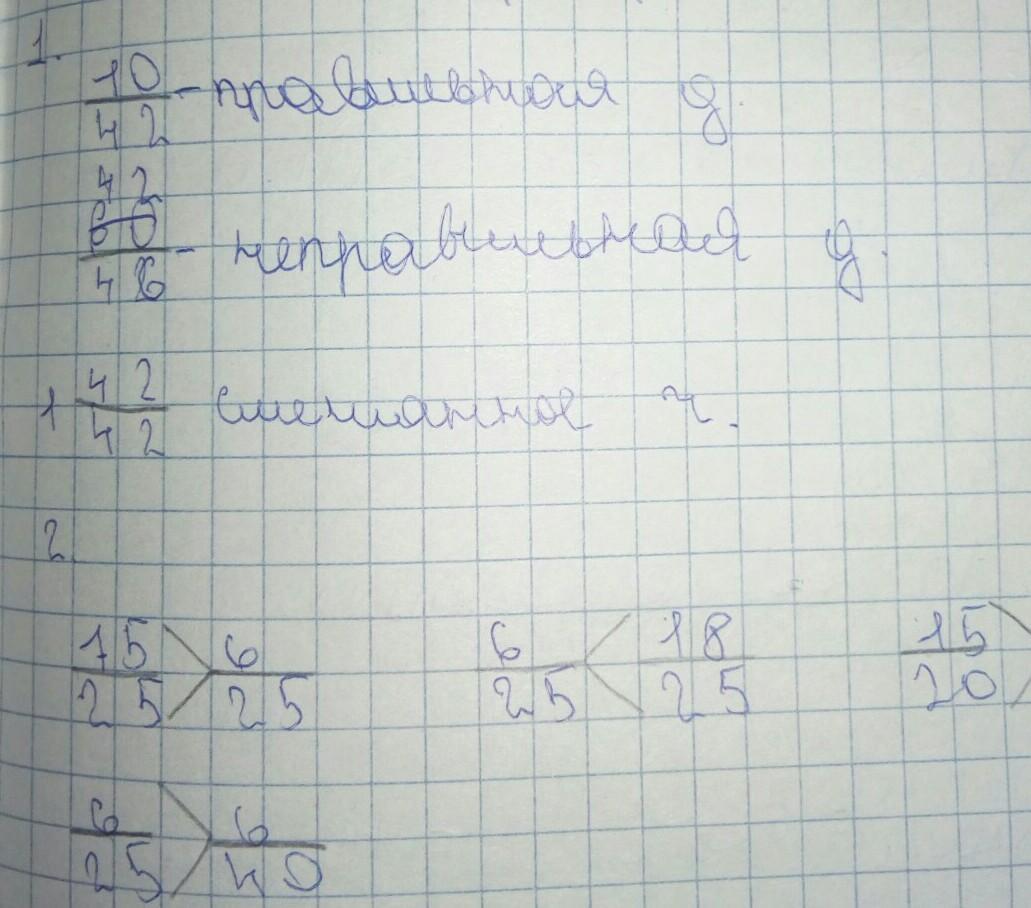 1.
10/42 - правильная д.
42/46 - неправильная д.
1 42/42 смешанное ч.
2
15/25 > 6/25 6/25 < 18/25 15/20 >
6/25 > 6/40